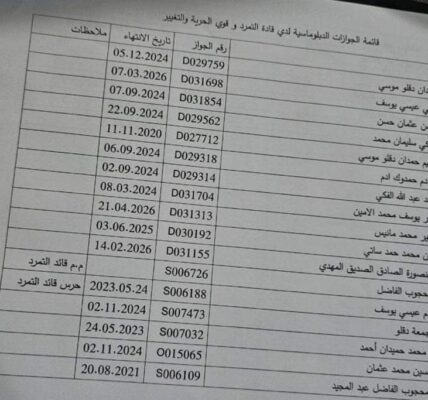 قائمة الجوازات الدبلوماسية لدي قادة التمرد و قوي الحرية والتغيير
رقم الجواز تاريخ الانتهاء ملاحظات
دان دقلو موسي D029759 05.12.2024
ي عيسي يوسف D031698 07.03.2026
ن عثمان حسن D031854 07.09.2024
كي سليمان محمد D029562 22.09.2024
يم حمدان دقلو موسي D027712 11.11.2020
دم حمدوك ادم D029318 06.09.2024
د عبد الله الفكي D029314 02.09.2024
ر يوسف محمد الامين D031704 08.03.2024
ير محمد مانيس D031313 21.04.2026
ن محمد حمد ساتي D030192 03.06.2025
نصورة الصادق الصديق المهدي D031155 14.02.2026
محجوب الفاضل S006726 م.م قائد التمرد
م عيسي يوسف S006188 2023.05.24 حرس قائد التمرد
جمعة دقلو S007473 02.11.2024
محمد حميدان أحمد S007032 24.05.2023
سين محمد عثمان O015065 02.11.2024
محجوب الفاضل عبد المجيد S006109 20.08.2021